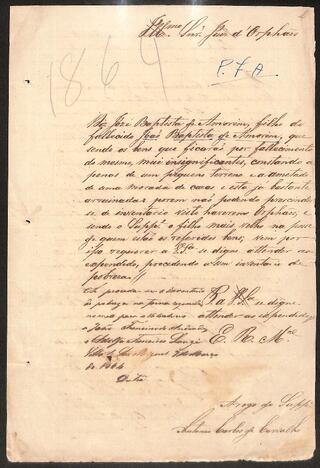 Illmo Snr. Juiz d'Orphãos
1864
P. J. A.
Diz José Baptista de Amorim, filho do
fallecido João Baptista de Amorim, que
sendo os bens que ficarão por fallecimento
do mesmo, mui insignificantes, constando a
penas de um pequeno terreno e a ametade
de uma morada de casas e esta já bastante
arruinada porem não podendo prescindir
se de inventario visto haverem Orphãos, e
sendo o Suppe. o filho mais velho na posse
de quem estão os referidos bens, vem por
isso requerer a VSa. se digne attender o
expendido, procedendo a um inventario de
pobresa
P. a VSa. se digne
attender ao expendido
E. R. Mce.
de 1864
Arogo do Suppe.
Antonio Carlos de Carvalho